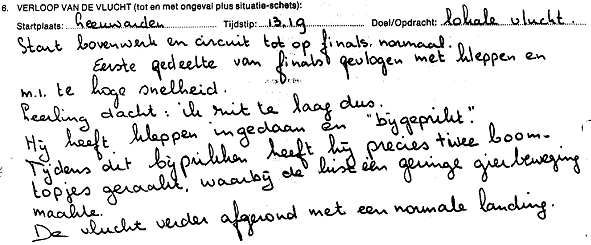 6. VERLOOP VAN DE VLUCHT (tot en met ongeval plus situatie-schets):
Startplaats: Leeuwarden Tijdstip: 13.19 Doel/Opdracht: lokale vlucht.
Start bovenwerk en circuit tot op finals. normaal.
Eerste gedeelte van finals gevlogen met kleppen en
m.i. te hoge snelheid.
Leerling dacht: ik zit te laag dus.
Hij heeft kleppen ingedaan en "bijgeprikt".
Tijdens dit bijprikken heeft hij precies twee boom-
topjes geraakt, waarbij de kist een geringe gierbeweging
maakte.
De vlucht verder afgerond met een normale landing.